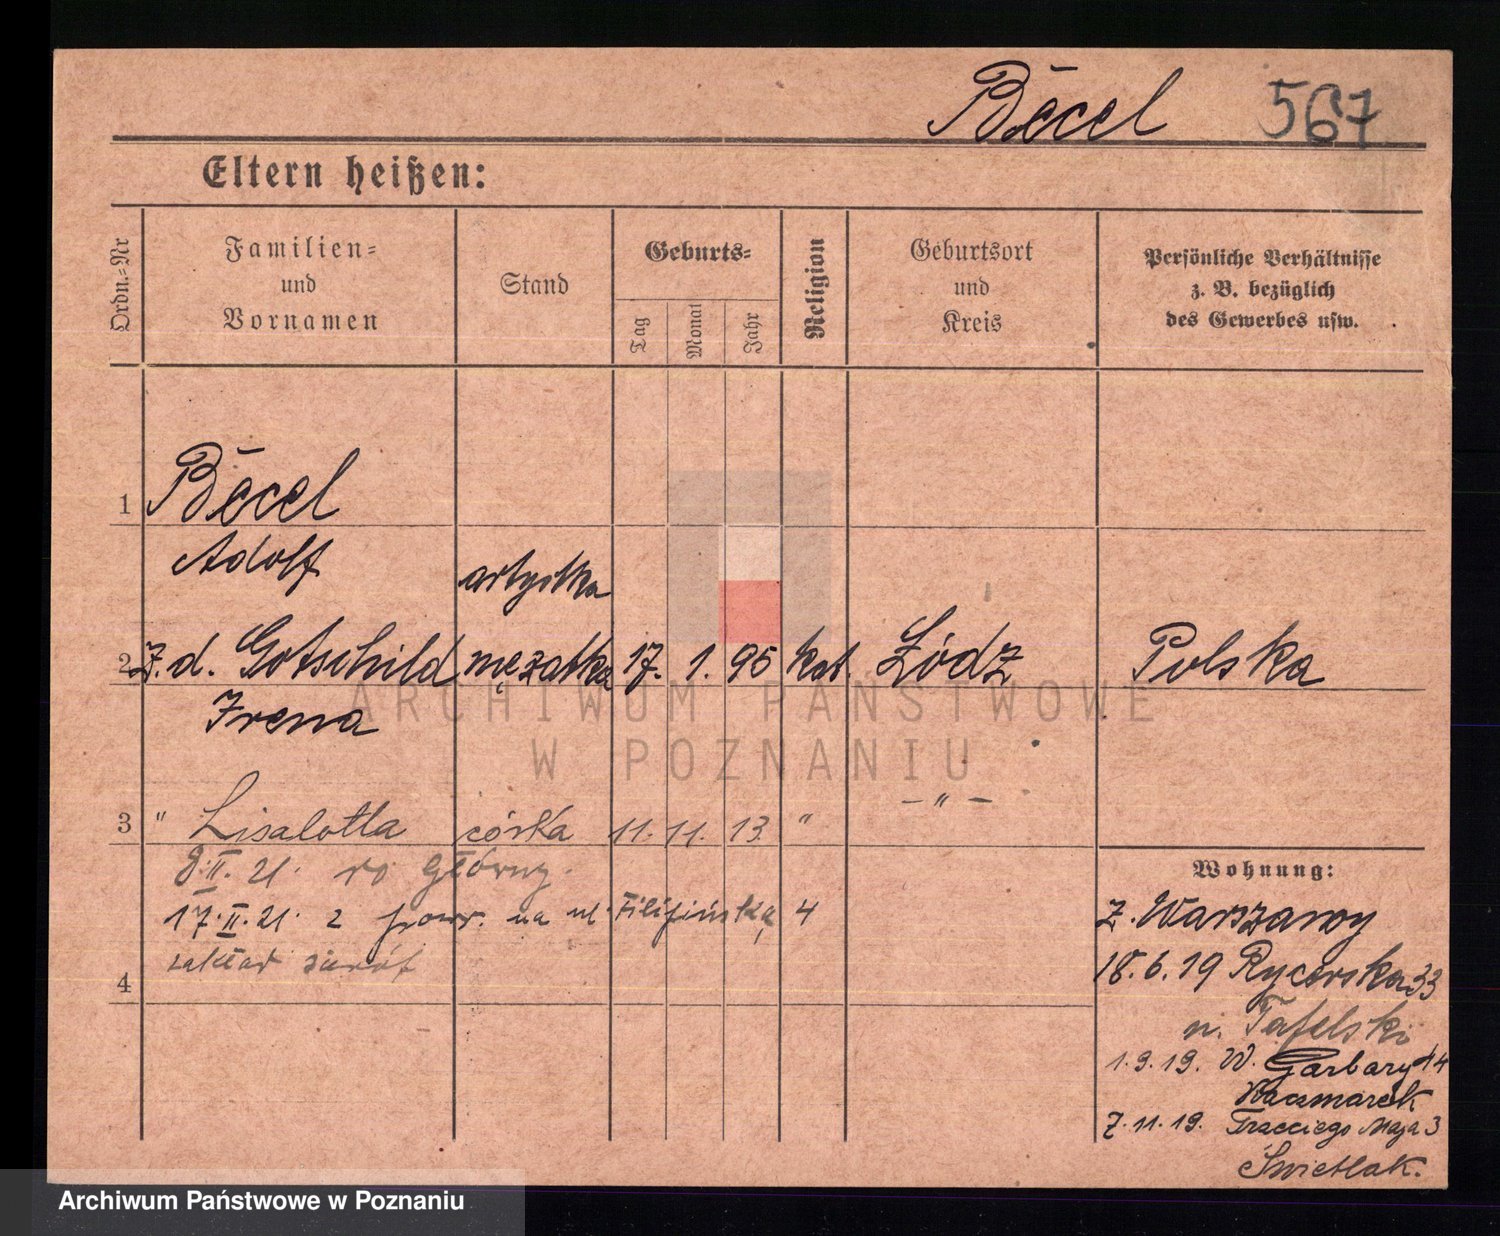 Bēcel 567
Eltern heißen:
Ordn.-Nr
Familien-
und
Vornamen
Stand
Geburts-
Tag
Monat
Jahr
Religion
Geburtsort
und
Kreis
Persönliche Verhältnisse
z. B. bezüglich
des Gewerbes usw.
1 Bēcel
Adolf artystka
2 Z. d. Gotschild mężatka 17. 1. 95 kat. Łódź Polska
Irena
ARCHIWUM PAŃSTWOWE
W POZNANIU
3 " Lisalotta córka 11. 11. 13 " – " –
8.II. 21. do Główny.
17.II.21. z powr. na ul. Filipińską 4
zakład sierót
4
Wohnung:
z. Warszawy
18.6.19 Rycerska 33
p. Tafelski
1.9.19. W. Garbary 44
Kaczmarek
7.11.19. Trzeciego Maja 3
Świetlak.
Archiwum Państwowe w Poznaniu